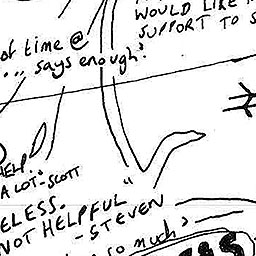 WOULD LIKE
SUPPORT TO
of time @
... says enough"
HELP.
A LOT" - SCOTT
ELESS.
NOT HELPFUL"
- STEVEN
so much